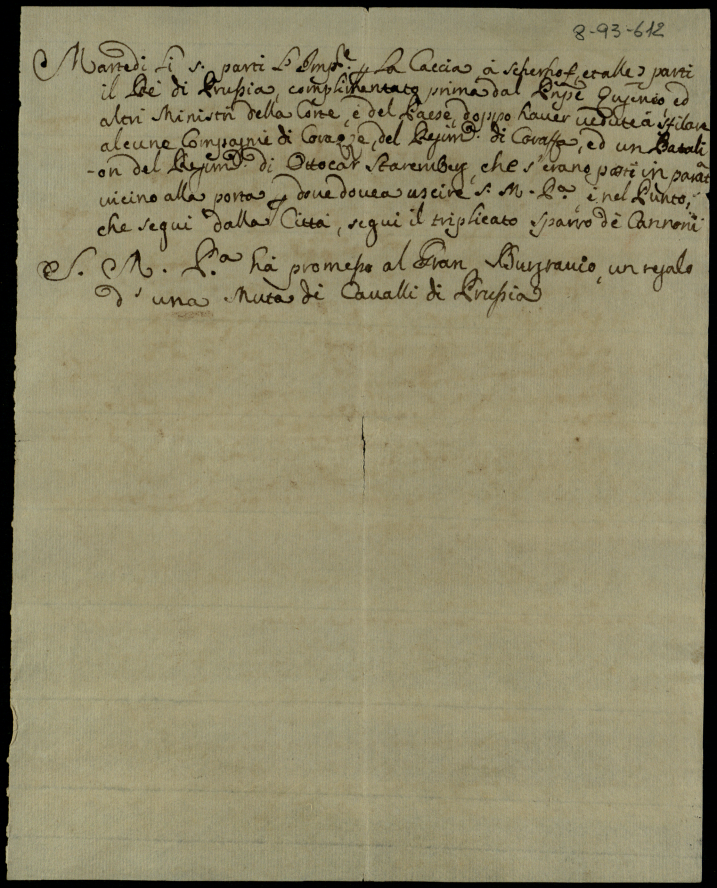 8-93-612
Martedi li 5. parti l'Imp.re p La Caccia à Scherhof, et alle 7 parti
il Rè di Prussia, complimentato prima dal Prpe Eugenio ed
altri Ministri della Corte, è del Paese, doppo haver vedute à sfilare
alcune Compagnie di Corazze, del Regim.to di Caraffa, ed un Batali
-on del Regim.to di Ottocar Staremberg, che s'erano posti in parat
a
vicino alla porta p dove dovea uscire S. M. P.a, è nel Punto,
che segui dalla Città, segui il triplicato sparro dè Cannoni
S. M. P.a hà promesso al Gran Burgravio, un regalo
d'una Muta di Cavalli di Prussia